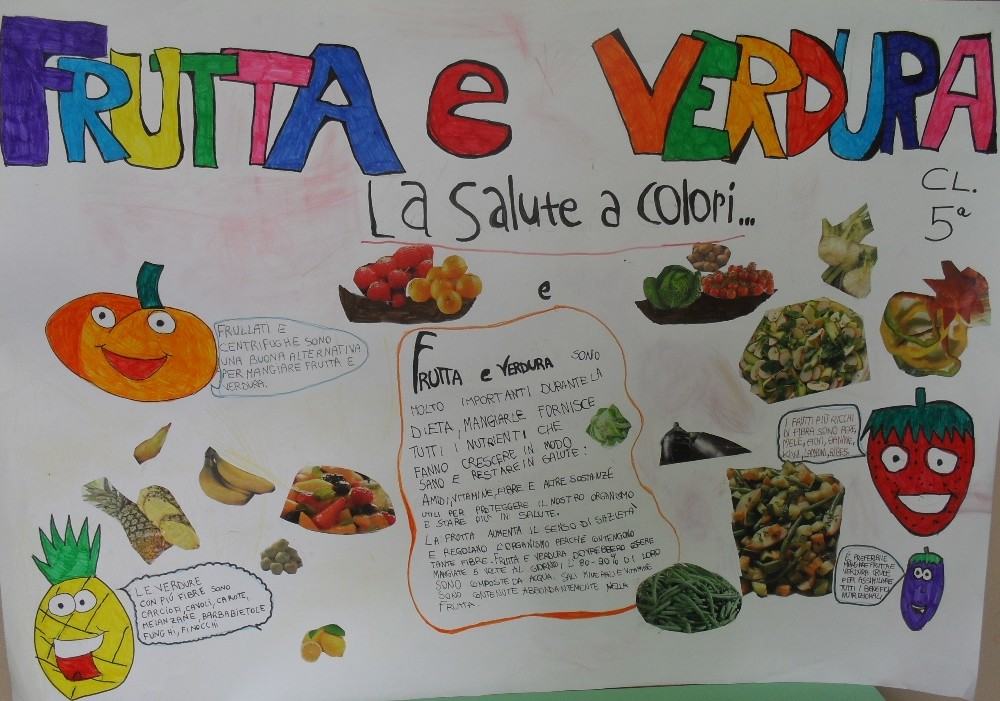 FRUTTA e VERDURA
La Salute a colori...
CL.
5ª
e
FRULLATI E
CENTRIFUGHE SONO
UNA BUONA ALTERNATIVA
PER MANGIARE FRUTTA E
VERDURA.
FRUTTA e VERDURA SONO
MOLTO IMPORTANTI DURANTE LA
DIETA, MANGIARLE FORNISCE
TUTTI I NUTRIENTI CHE
FANNO CRESCERE IN MODO
SANO E RESTARE IN SALUTE:
AMIDI, VITAMINE, FIBRE E ALTRE SOSTANZE
UTILI PER PROTEGGERE IL NOSTRO ORGANISMO
E STARE PIÙ IN SALUTE.
LA FRUTTA AUMENTA IL SENSO DI SAZIETÀ
E REGOLANO L'ORGANISMO PERCHÉ CONTENGONO
TANTE FIBRE. FRUTTA E VERDURA DOVREBBERO ESSERE
MANGIATE 5 VOLTE AL GIORNO; L'80-90% DI LORO
SONO COMPOSTE DA ACQUA. SALI MINERALI E VITAMINE
SONO CONTENUTE ABBONDANTEMENTE NELLA
FRUTTA
I FRUTTI PIÙ RICCHI
DI FIBRA SONO PERE,
MELE, FICHI, BANANE,
KIWI, LAMPONI, RIBES.
È PREFERIBILE
MANGIARE FRUTTA E
VERDURA CRUDE
PER ASSIMILARE
TUTTI I BENEFICI
NUTRIZIONALI
LE VERDURE
CON PIÙ FIBRE SONO
CARCIOFI, CAVOLI, CAROTE,
MELANZANE, BARBABIETOLE
FUNGHI, FINOCCHI